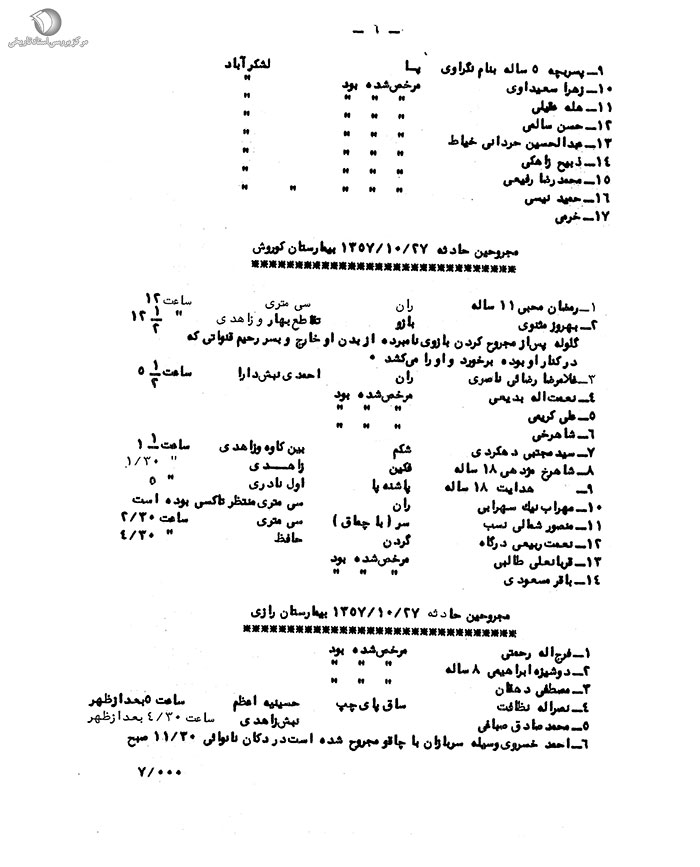 مرکز بررسی اسناد تاریخی
ـ ٦ ـ
۹ـ پسربچه ۵ ساله بنام نگراوی پا لشکرآباد
۱۰ـ زهرا سعیداوی مرخص شده بود "
۱۱ـ هله عقیلی " " " "
۱۲ـ حسن سالمی " " " "
۱۳ـ عبدالحسین حردانی خیاط " " " "
۱۴ـ ذبیح زاهکی " " " "
۱۵ـ محمدرضا رفیعی " " " "
۱۶ـ حمید نیسی " " " " "
۱۷ـ خرمی
مجروحین حادثه ۱۳۵۷/۱۰/۲۷ بیمارستان کوروش
******************************
۱ـ رمضان محبی ۱۱ ساله ران سی متری ساعت ۱۲
۲ـ بهروز مثنوی بازو تقاطع بهار و زاهدی " ۱۲ ۱/۲
گلوله پس از مجروح کردن بازوی نامبرده از بدن او خارج و بسر رحیم قنواتی که
در کنار او بوده برخورد و او را میکشد ٠
۳ـ غلامرضا رضائی ناصری ران احمدی نبش دارا ساعت ۵ ۱/۲
۴ـ نعمت اله بدیعی مرخص شده بود
۵ـ علی کریمی " " "
۶ـ شاهرخی " " "
۷ـ سید مجتبی دهکردی شکم بین کاوه و زاهدی ساعت ۱ ۱
۸ـ شاهرخ مژدهی ۱۸ ساله فکین زاهدی " ۱/۳۰
۹ـ هدایت ۱۸ ساله پاشنه پا اول نادری " ۵
۱۰ـ مهراب نیک سهرابی ران سی متری منتظر تاکسی بوده است
۱۱ـ منصور شمالی نسب سر (با چماق) سی متری ساعت ۲/۳۰
۱۲ـ نعمت ربیعی درگاه گردن حافظ " ۴/۳۰
۱۳ـ قربانعلی طالبی مرخص شده بود
۱۴ـ باقر مسعودی " " "
مجروحین حادثه ۱۳۵۷/۱۰/۲۷ بیمارستان رازی
******************************
۱ـ فرج اله رحمتی مرخص شده بود
۲ـ دوشیزه ابراهیمی ۸ ساله " " "
۳ـ مصطفی دهقان " " "
۴ـ نصراله نظافت ساق پای چپ حسینیه اعظم ساعت ۵ بعدازظهر
۵ـ محمد صادق صباغی نبش زاهدی ساعت ۴/۳۰ بعدازظهر
۶ـ احمد خسروی وسیله سربازان با چاقو مجروح شده است در دکان نانوائی ۱۱/۳۰ صبح
۷/۰۰۰